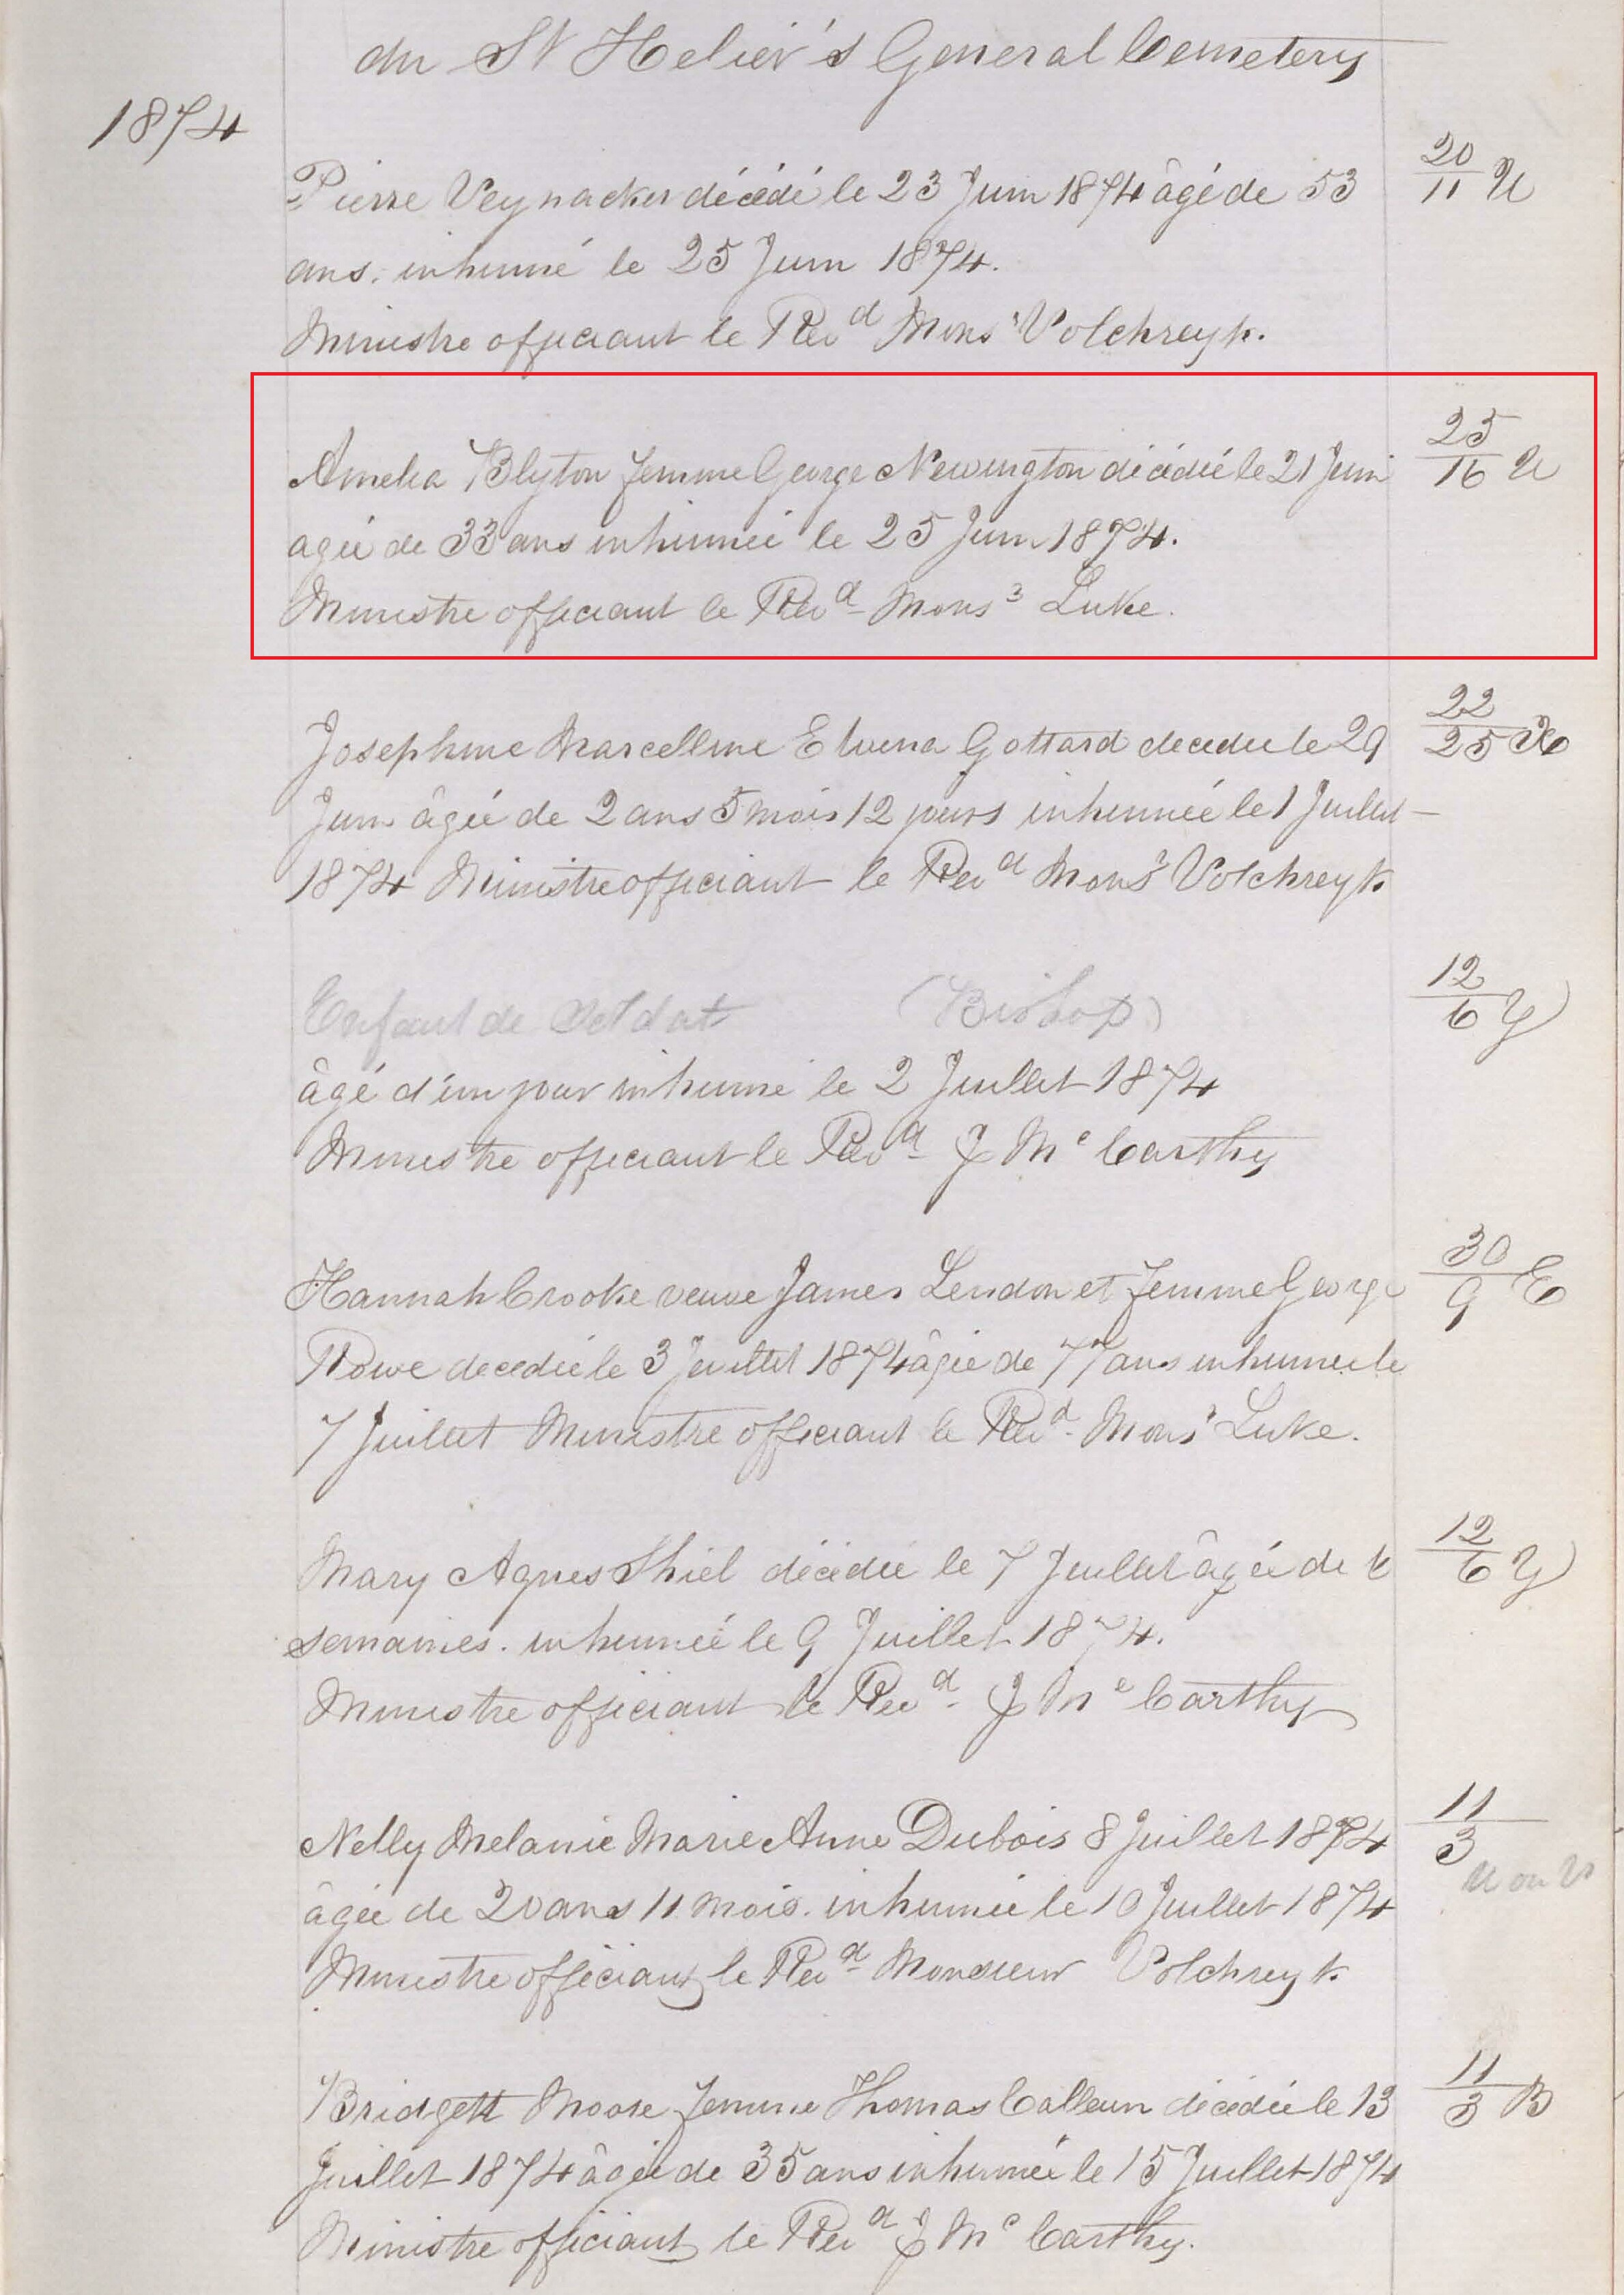 du St Helier's General Cemetery
1874
Pierre Veynacker décédé le 23 Juin 1874 âgé de 53
20/11 U
ans. inhumé le 25 Juin 1874.
Ministre officiant le Revd Monsr Volckreyk.
Amelia Blyton femme George Newington décédée le 21 Juin
25/16 U
agée de 33 ans inhumée le 25 Juin 1874.
Ministre officiant le Revd Monsr Luke.
Josephine Marcelline Elvena Gottard decedee le 29
22/25
Juin âgée de 2 ans 5 mois 12 jours inhumée le 1 Juillet
1874 Ministre officiant le Revd Monsr Volckreyk
Enfant de Soldat (Bishop)
12/6 Y
âgé d'un jour inhumé le 2 Juillet 1874
Ministre officiant le Revd J Mc Carthy
Hannah Crooke veuve James Lendon et femme George
30/9 E
Rowe decedée le 3 Juillet 1874 âgée de 77 ans inhumée le
7 Juillet Ministre officiant le Revd Monsr Luke.
Mary Agnes Shiel décédée le 7 Juillet âgée de 6
12/6 Y
semaines. inhumée le 9 Juillet 1874.
Ministre officiant le Revd J Mc Carthy
Nelly Melanie Marie Anne Dubois 8 Juillet 1874
11/3
U ou
âgée de 20 ans 11 mois. inhumée le 10 Juillet 1874
Ministre officiant le Revd Monsieur Volckreyk
Bridgett Moore femme Thomas Calleun décédée le 13
11/3 B
Juillet 1874 âgée de 35 ans inhumée le 15 Juillet 1874
Ministre officiant le Revd J Mc Carthy.